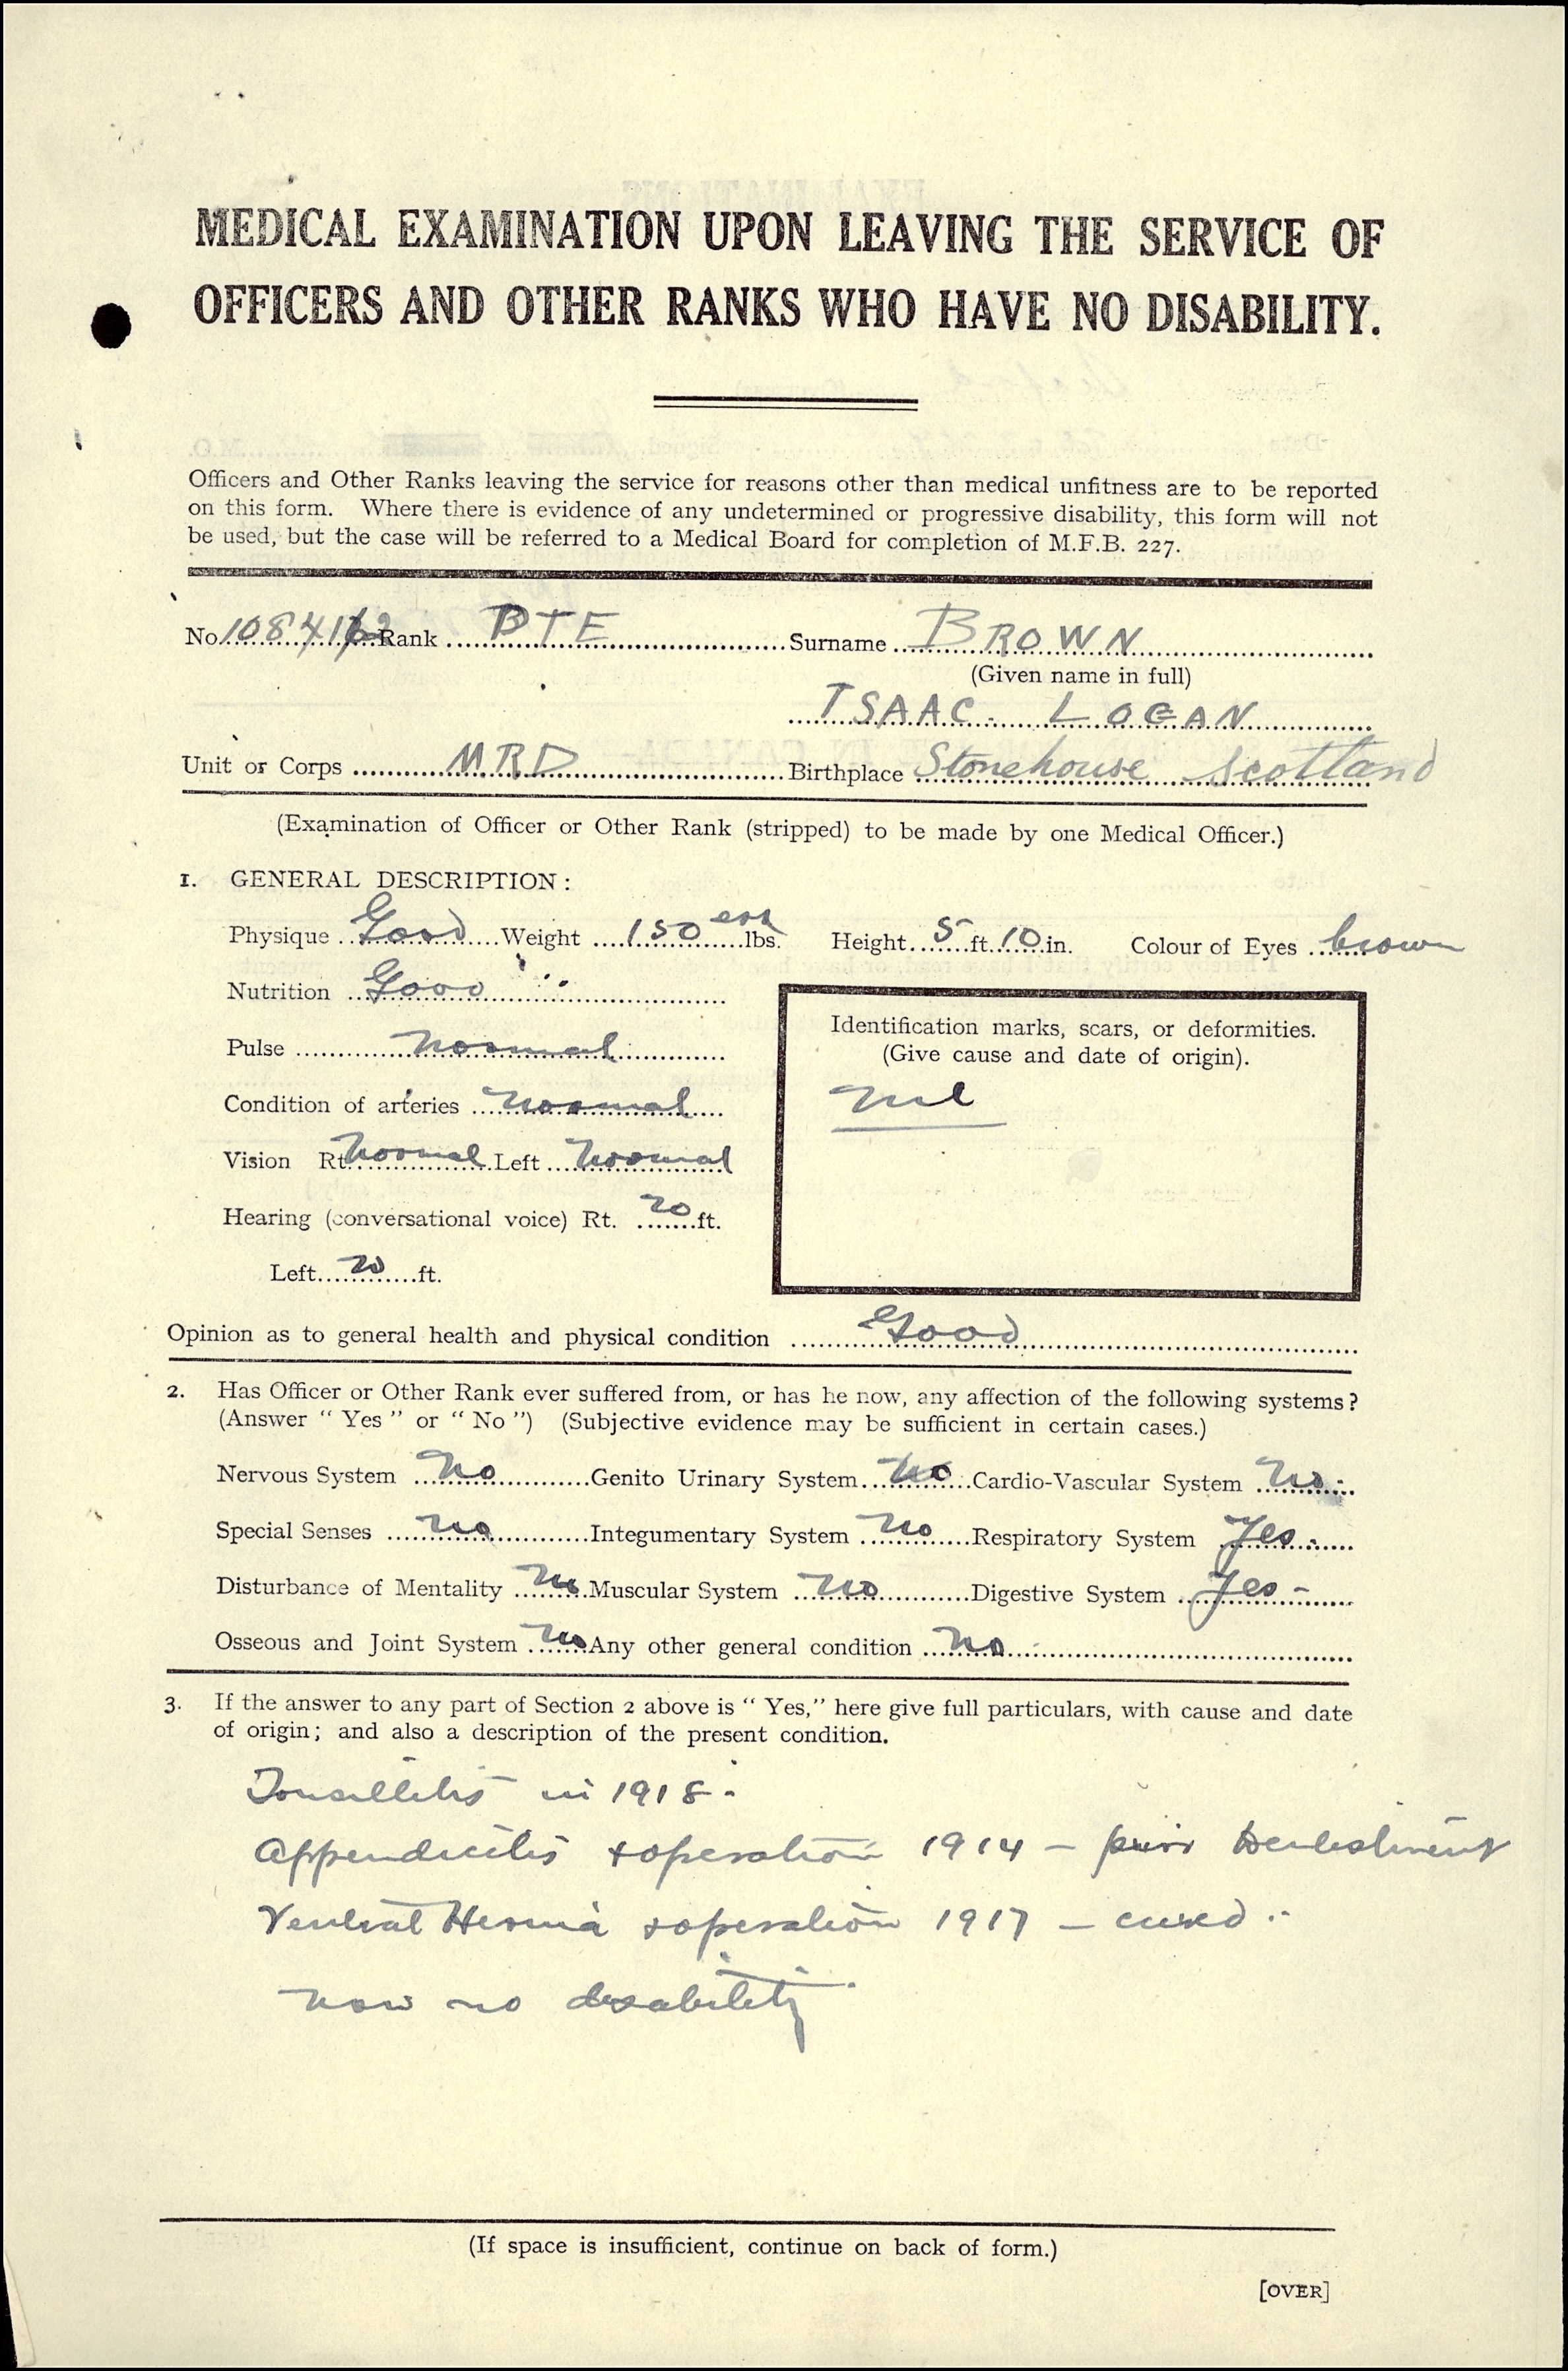 MEDICAL EXAMINATION UPON LEAVING THE SERVICE OF
OFFICERS AND OTHER RANKS WHO HAVE NO DISABILITY.
Officers and Other Ranks leaving the service for reasons other than medical unfitness are to be reported
on this form. Where there is evidence of any undetermined or progressive disability, this form will not
be used, but the case will be referred to a Medical Board for completion of M.F.B. 227.
No. Rank PTE Surname BROWN
(Given name in full)
ISAAC LOGAN
Unit or Corps MRD Birthplace Stonehouse Scotland
(Examination of Officer or Other Rank (stripped) to be made by one Medical Officer.)
1. GENERAL DESCRIPTION:
Physique Good Weight 150 est lbs. Height 5 ft. 10 in. Colour of Eyes brown
Nutrition Good
Identification marks, scars, or deformities.
(Give cause and date of origin).
nil
Pulse normal
Condition of arteries normal
Vision Rt. normal Left normal
Hearing (conversational voice) Rt. 20 ft.
Left 20 ft.
Opinion as to general health and physical condition Good
2. Has Officer or Other Rank ever suffered from, or has he now, any affection of the following systems?
(Answer "Yes" or "No") (Subjective evidence may be sufficient in certain cases.)
Nervous System No Genito Urinary System No Cardio-Vascular System No
Special Senses No Integumentary System No Respiratory System Yes
Disturbance of Mentality No Muscular System No Digestive System Yes -
Osseous and Joint System No Any other general condition No
3. If the answer to any part of Section 2 above is "Yes," here give full particulars, with cause and date
of origin; and also a description of the present condition.
Tonsillitis in 1918.
Appendicitis + operation 1914 - prior to enlistment
Ventral Hernia + operation 1917 - cured.
now no disability
(If space is insufficient, continue on back of form.)
[OVER]